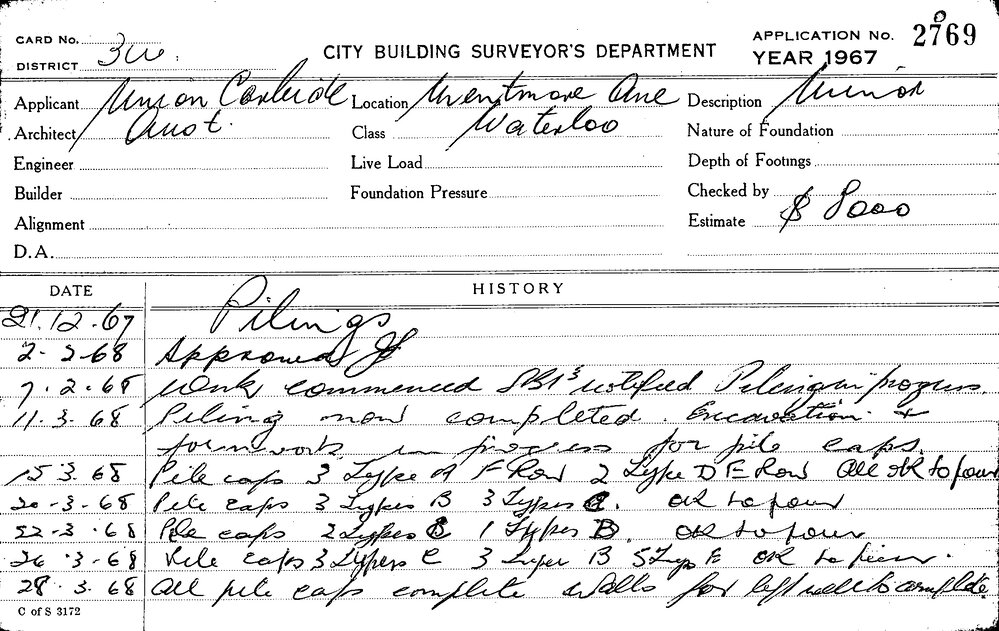 CARD No. 3W.
DISTRICT
CITY BUILDING SURVEYOR'S DEPARTMENT
APPLICATION No. 2769
YEAR 1967
Applicant Union Carbide
Location Wentmore Ave
Description Minor
Architect Aust.
Class Waterloo
Nature of Foundation
Engineer
Live Load
Depth of Footings
Builder
Foundation Pressure
Checked by
Alignment
Estimate $ 8000
D.A.
DATE
HISTORY
21.12.67 Pilings
2-2-68 Approved
7.2.68 Work commenced notified Piling in progress.
11.3.68 Piling now completed. Excavation &
formwork in progress for pile caps.
15.3.68 Pile caps 3 Type A F Row 2 Type D E Row All OK to pour
20-3-68 Pile caps 3 Types B 3 Types C. OK to pour
22-3-68 Pile caps 2 Types C 1 Types B. OK to pour
26.3.68 Pile caps 3 Types C 3 Type B 5 Type E OK to pour.
28.3.68 All pile caps complete walls for to complete
C of S 3172